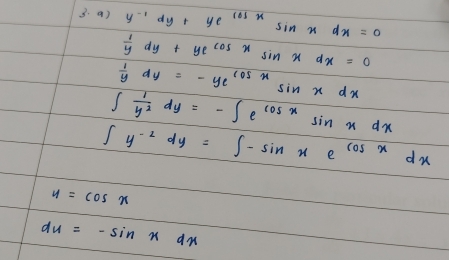 3. a) y⁻¹ dy + ye^cos x sin x dx = 0
1/y dy + ye^cos x sin x dx = 0
1/y dy = - ye^cos x sin x dx
∫ 1/y² dy = - ∫ e^cos x sin x dx
∫ y⁻² dy = ∫ - sin x e^cos x dx
u = cos x
du = - sin x dx